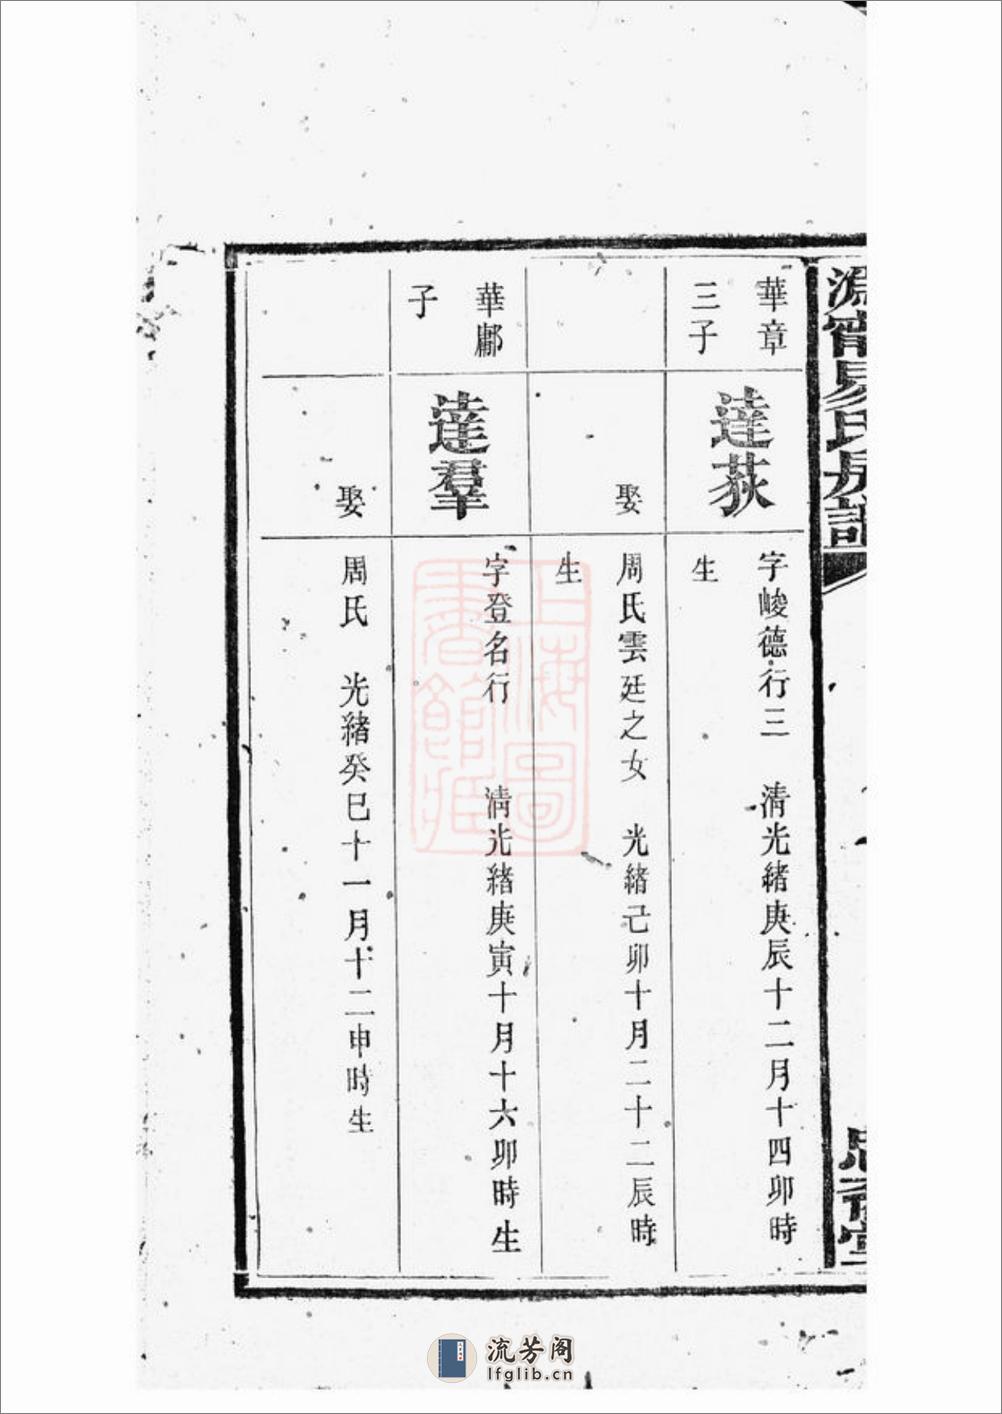 氏族譜
華章
三子
達荻
字峻德行三 清光緒庚辰十二月十四卯時
生
娶
周氏雲廷之女 光緒己卯十月二十二辰時
生
華鄘
子
達羣
字登名行 清光緒庚寅十月十六卯時生
娶
周氏 光緒癸巳十一月十二申時生
上海圖
書館藏
流芳阁
lfglib.cn